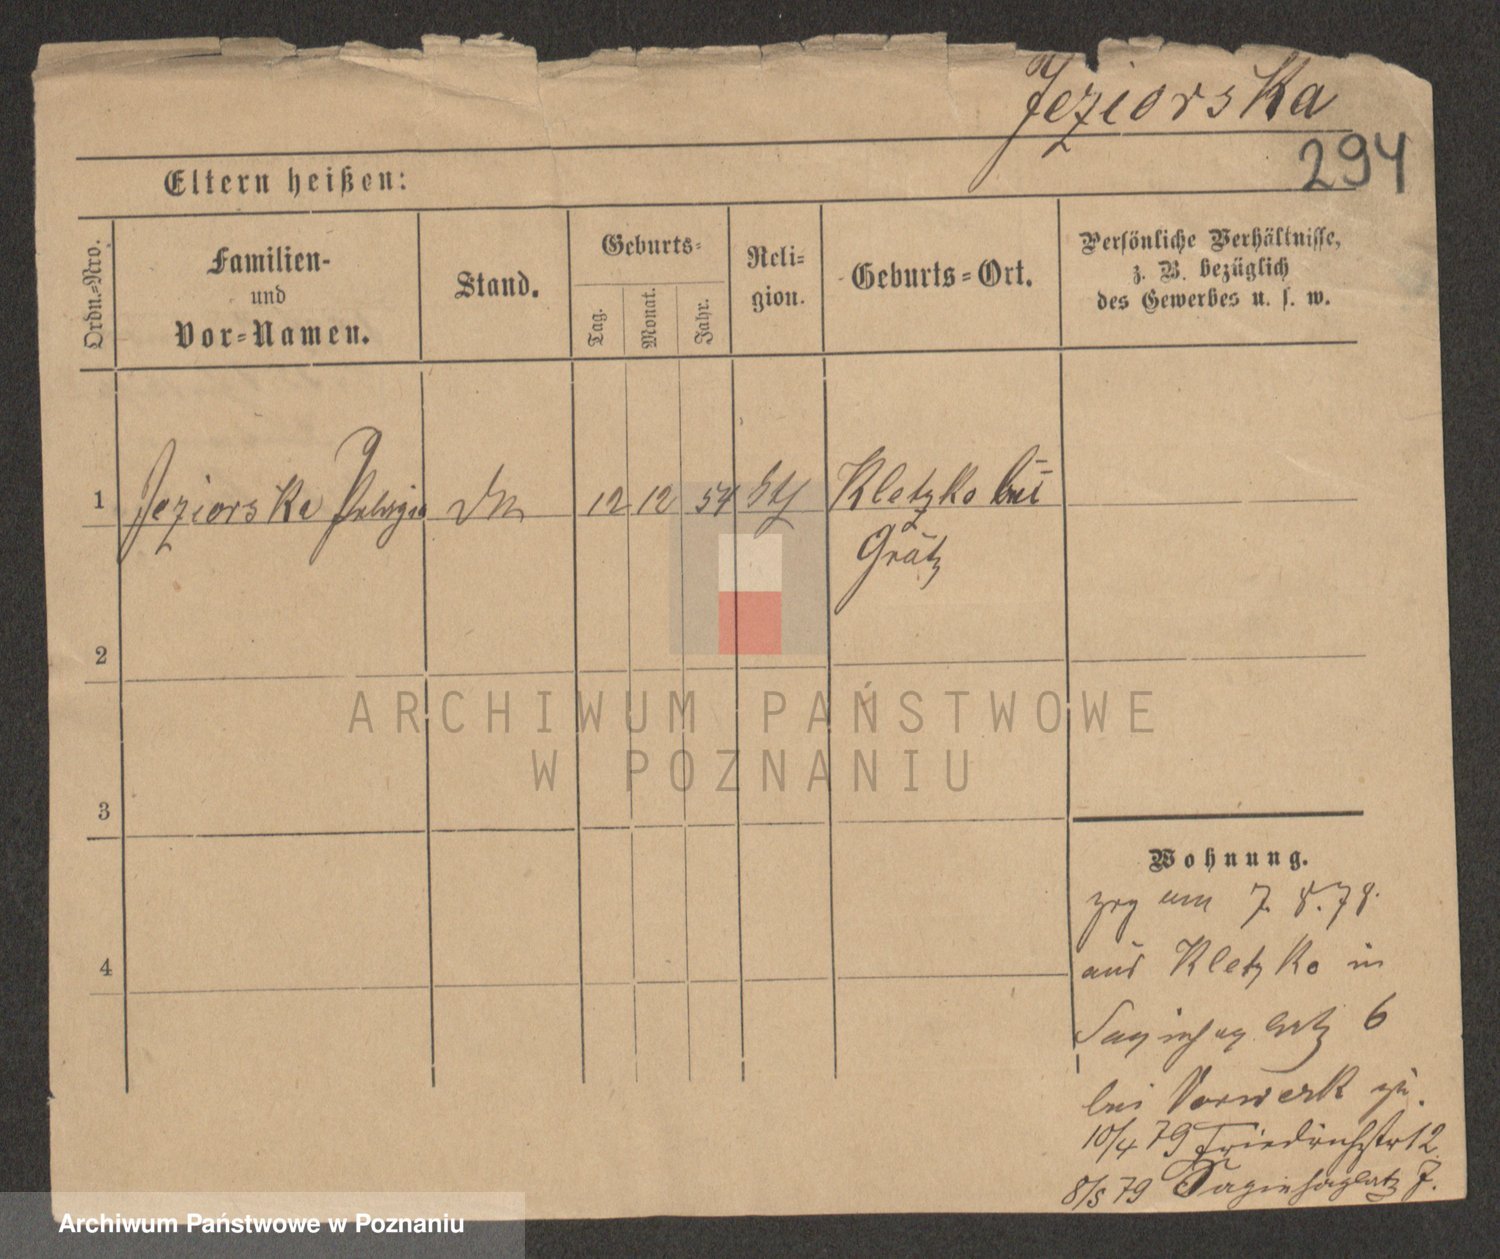 Jeziorska
294
Eltern heißen:
Ordn.-Nro.
Familien-
und
Vor-Namen.
Stand.
Geburts-
Tag.
Monat.
Jahr.
Reli-
gion.
Geburts-Ort.
Persönliche Verhältnisse,
z. B. bezüglich
des Gewerbes u. s. w.
1
Jeziorska Pelagia
12
12
54
Kletzko bei
Grätz
2
3
4
Wohnung.
7. 8. 78.
aus Kletzko in
Sapiehaplatz 6
bei Vorwerk zu.
10/4 79 Friedrichstr 12
8/5 79 Sapiehaplatz 7.
ARCHIWUM PAŃSTWOWE
W POZNANIU
Archiwum Państwowe w Poznaniu